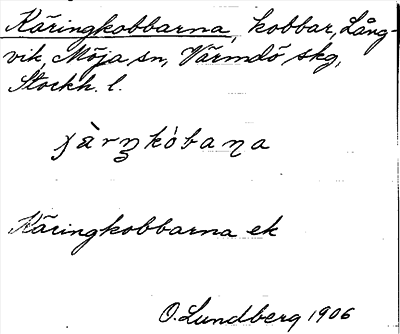 Käringkobbarna, kobbar, Lång-
vik, Möja sn, Värmdö skg,
Stockh. l.
Käringkobbarna ek
O. Lundberg 1906